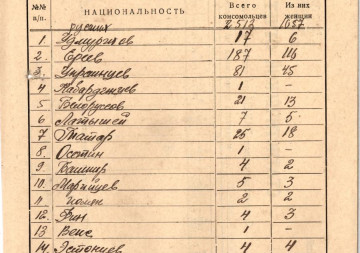 №№ п/п. НАЦИОНАЛЬНОСТЬ Всего комсомольцев Из них женщин
русских 2513 1057
1. Удмуртов 17 6
2. Евреев 187 116
3. Украинцев 81 45
4. Кабардинцев 1 -
5 Белоруссов 21 13
6 Латышей 7 5
7 Татар 25 18
8. Осетин 1 -
9 Башкир 4 2
10. Марийцев 5 3
11 2 2
12. Фин 4 3
13 Венг 1 -
14. Эстонцев 4 4